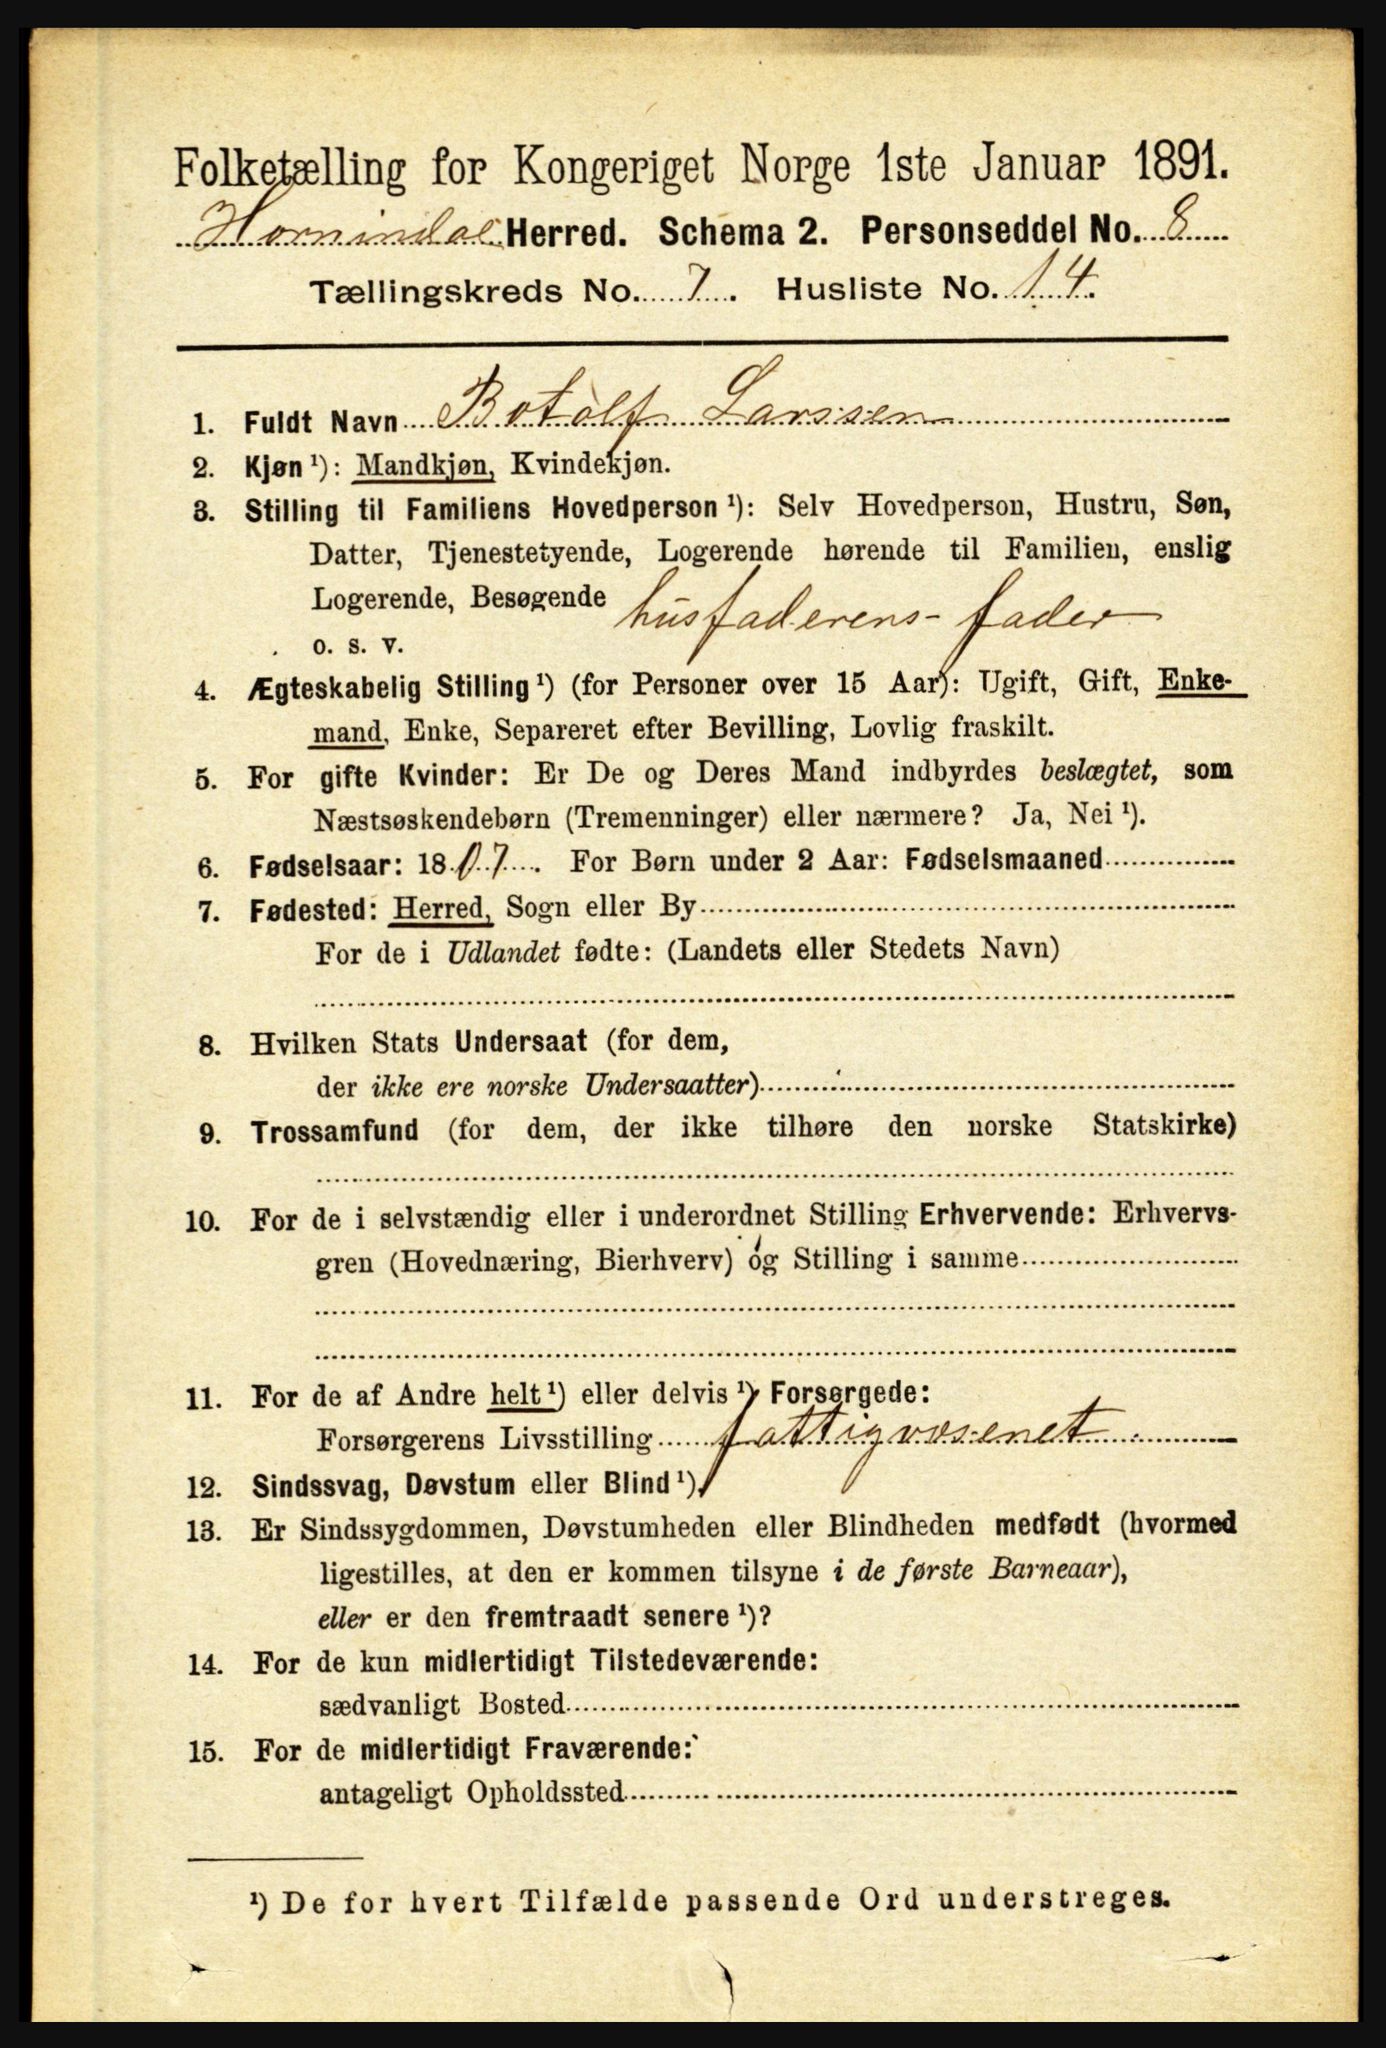 Folketælling for Kongeriget Norge 1ste Januar 1891.
Hornindal Herred. Schema 2. Personseddel No. 8
Tællingskreds No. 7. Husliste No. 14.
1. Fuldt Navn Botolf Larssen
2. Kjøn ¹): Mandkjøn, Kvindekjøn.
3. Stilling til Familiens Hovedperson ¹): Selv Hovedperson, Hustru, Søn,
Datter, Tjenestetyende, Logerende hørende til Familien, enslig
Logerende, Besøgende husfaderens-fader
o. s. v.
4. Ægteskabelig Stilling ¹) (for Personer over 15 Aar): Ugift, Gift, Enke-
mand, Enke, Separeret efter Bevilling, Lovlig fraskilt.
5. For gifte Kvinder: Er De og Deres Mand indbyrdes beslægtet, som
Næstsøskendebørn (Tremenninger) eller nærmere? Ja, Nei ¹).
6. Fødselsaar: 1807. For Børn under 2 Aar: Fødselsmaaned
7. Fødested: Herred, Sogn eller By
For de i Udlandet fødte: (Landets eller Stedets Navn)
8. Hvilken Stats Undersaat (for dem,
der ikke ere norske Undersaatter)
9. Trossamfund (for dem, der ikke tilhøre den norske Statskirke)
10. For de i selvstændig eller i underordnet Stilling Erhvervende: Erhvervs-
gren (Hovednæring, Bierhverv) og Stilling i samme
11. For de af Andre helt ¹) eller delvis ¹) Forsørgede:
Forsørgerens Livsstilling fattigvæsenet
12. Sindssvag, Døvstum eller Blind ¹).
13. Er Sindssygdommen, Døvstumheden eller Blindheden medfødt (hvormed
ligestilles, at den er kommen tilsyne i de første Barneaar),
eller er den fremtraadt senere ¹)?
14. For de kun midlertidigt Tilstedeværende:
sædvanligt Bosted
15. For de midlertidigt Fraværende:
antageligt Opholdssted
¹) De for hvert Tilfælde passende Ord understreges.